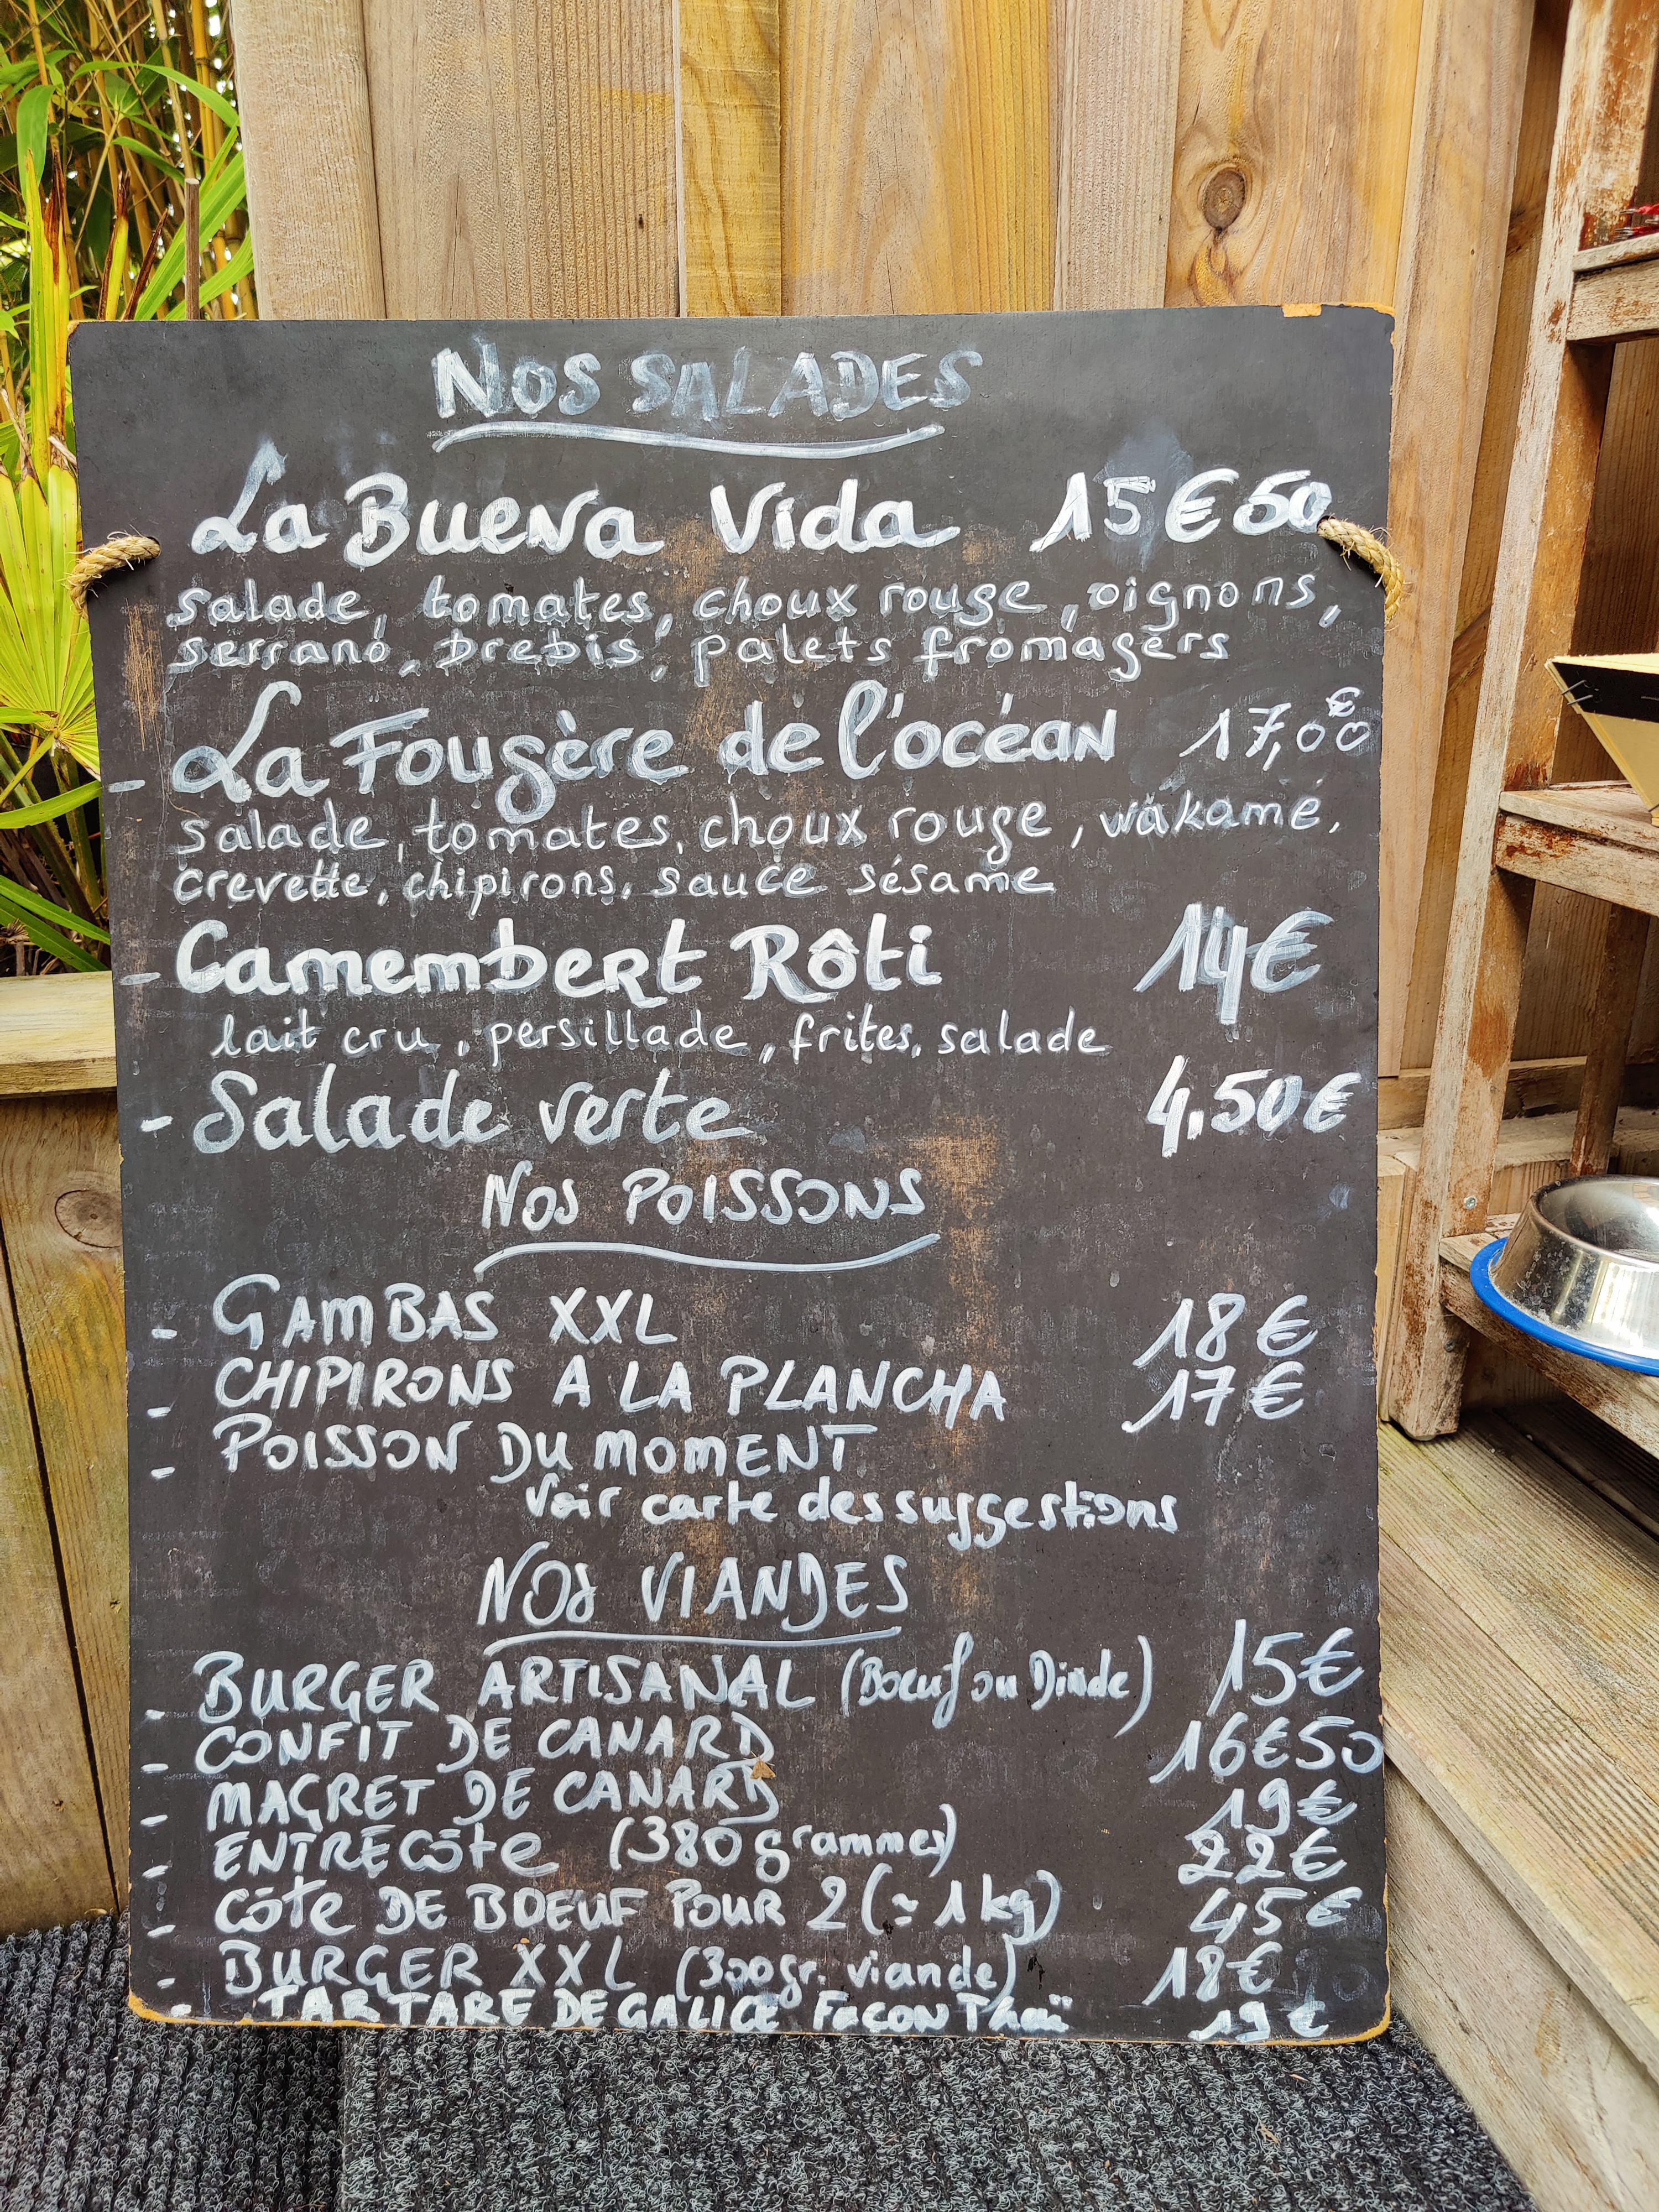 NOS SALADES
La Buena Vida 15€50
salade, tomates, choux rouge, oignons,
serrano, brebis, palets fromagers
- La Fougère de l'océan 17,00€
salade, tomates, choux rouge, wakamé,
crevette, chipirons, sauce sésame
- Camembert Rôti 14€
lait cru, persillade, frites, salade
- Salade verte 4,50€
NOS POISSONS
- GAMBAS XXL 18€
- CHIPIRONS A LA PLANCHA 17€
- POISSON DU MOMENT
Voir carte des suggestions
NOS VIANDES
- BURGER ARTISANAL (Boeuf ou Dinde) 15€
- CONFIT DE CANARD 16€50
- MAGRET DE CANARD 19€
- ENTRECôte (380grammes) 22€
- Côte DE BOEUF POUR 2 (≃ 1kg) 45€
- BURGER XXL (300gr. viande) 18€
- TARTARE DE GALICE FaCON Thaï 19€